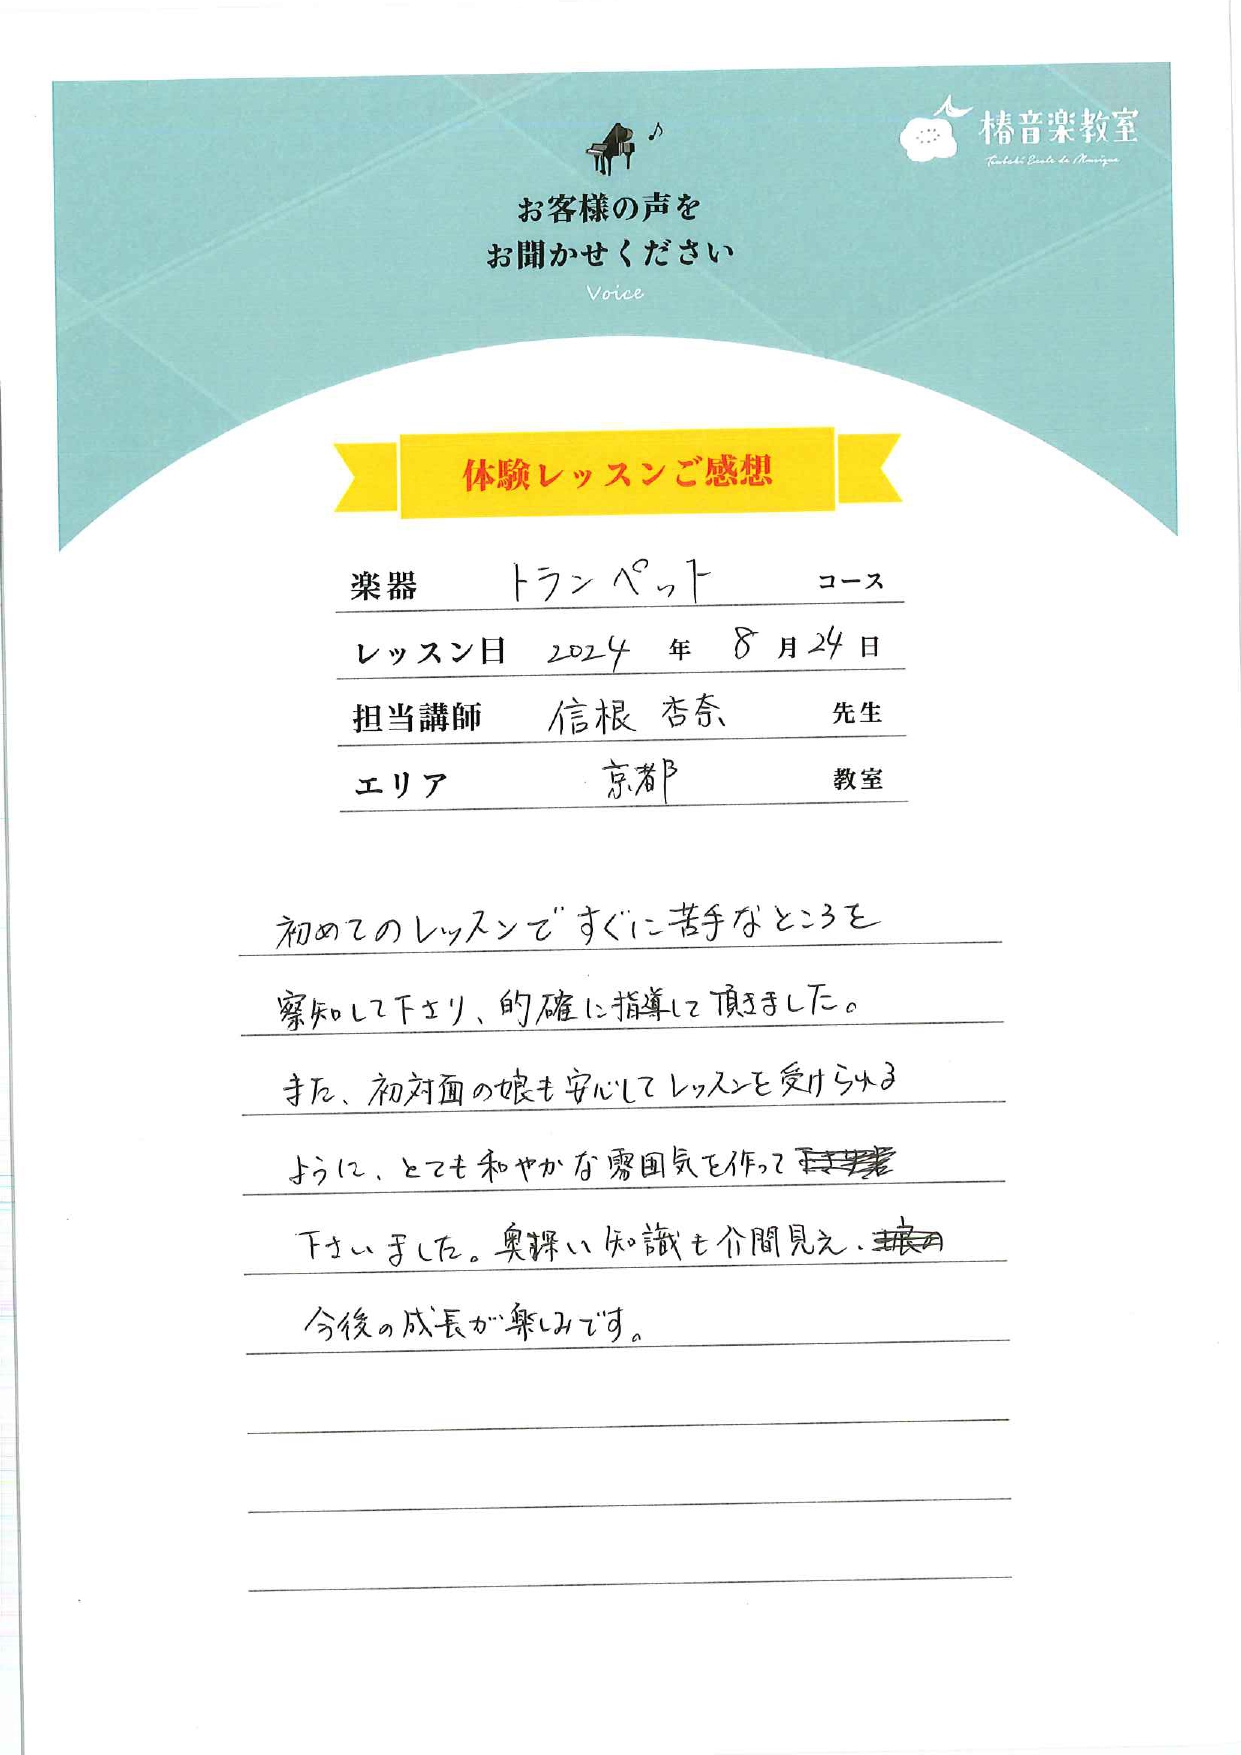 椿音楽教室
Tsubaki Ecole de Musique
お客様の声を
お聞かせください
Voice
体験レッスンご感想
楽器 トランペット コース
レッスン日 2024 年 8 月 24 日
担当講師 信根 杏奈 先生
エリア 京都 教室
初めてのレッスンですぐに苦手なところを
察知して下さり、的確に指導して頂きました。
また、初対面の娘も安心してレッスンを受けられる
ように、とても和やかな雰囲気を作って
下さいました。奥深い知識も介間見え、
今後の成長が楽しみです。